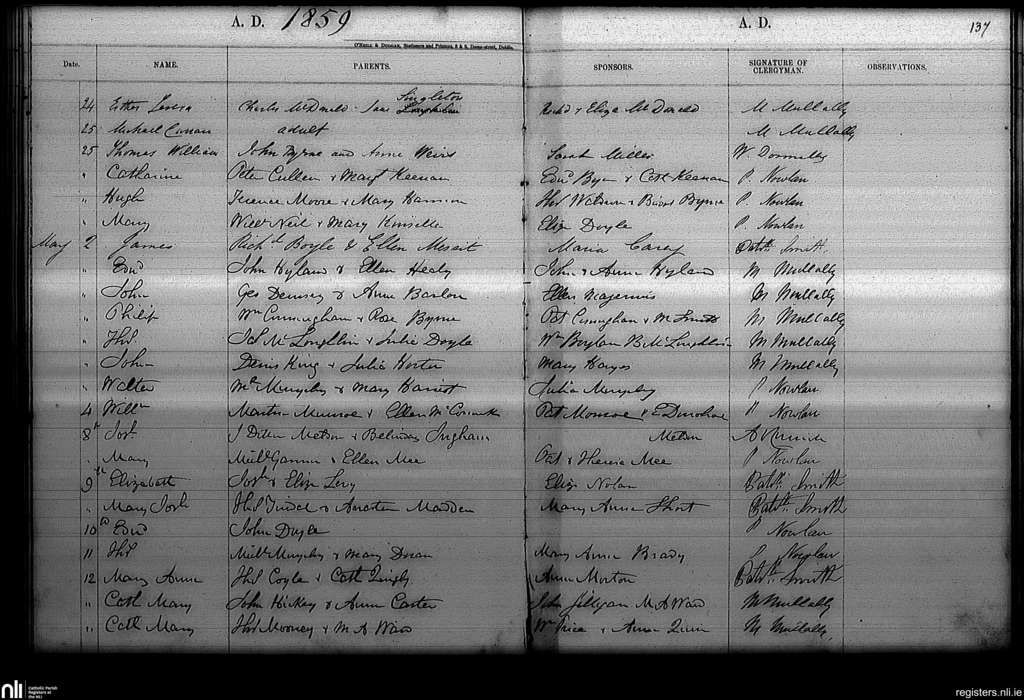 A. D. 1859 A. D. 137
O'Neill & Duggan, Stationers and Printers, Dame-street, Dublin.
Date. NAME. PARENTS. SPONSORS. SIGNATURE OF CLERGYMAN. OBSERVATIONS.
Singleton
24 Esther Charles McDonald Jane Richd & Eliza McDonald M Mullally
25 Michael Curran adult M Mullally
25 Thomas William John Byrne and Anne Weirs Sarah Miller W. Donnelly
" Catharine Peter Cullen & Margt Keenan Edwd Byrn & Cath Keenan P. Nowlan
" Hugh Terence Moore & Mary Thos Watson & Byrne P. Nowlan
" Mary Willm Neil & Mary Kinsella Eliza Doyle P. Nowlan
May 2 James Richd Boyle & Ellen Maria Carey Patk Smith
" Edwd John Hyland & Ellen Healy John & Anne Hyland M Mullally
" John Geo Dempsey & Anne Barlow Ellen Magennis M Mullally
" Philip Wm Cunningham & Rose Byrne Pat Cunnighan & M Smith M Mullally
" Thos McLoughlin & Julia Doyle Wm Boylan B. McLoughlin M Mullally
" John Denis King & Julia Mary Hayes M Mullally
" Walter Murphy & Mary Julia Murphy P Nowlan
4 Willm Martin Munroe & Ellen McCormack Pat Monroe & E Donohoe P Nowlan
8th Josh Metson & Ingham Metson
" Mary Michl Gannon & Ellen Mee Pat & Theresa Mee P Nowlan
9th Elizabeth Josh & Eliza Levy Eliza Nolan Patk Smith
" Mary Josh Thos & Madden Mary Anne Short Patk Smith
10th Edwd John Doyle P Nowlan
11 Thos Michl Murphy & Mary Doran Mary Anne Brady Nowlan
12 Mary Anne Thos Coyle & Cath Quigly Anne Morton Patk Smith
" Cath Mary John Hickey & Anne Carter John Gilligan M. A Ward M Mullally
" Cath Mary Thos Mooney & M. A Ward Wm Price & Anne Quin M Mullally
nli Catholic Parish Registers at the NLI registers.nli.ie